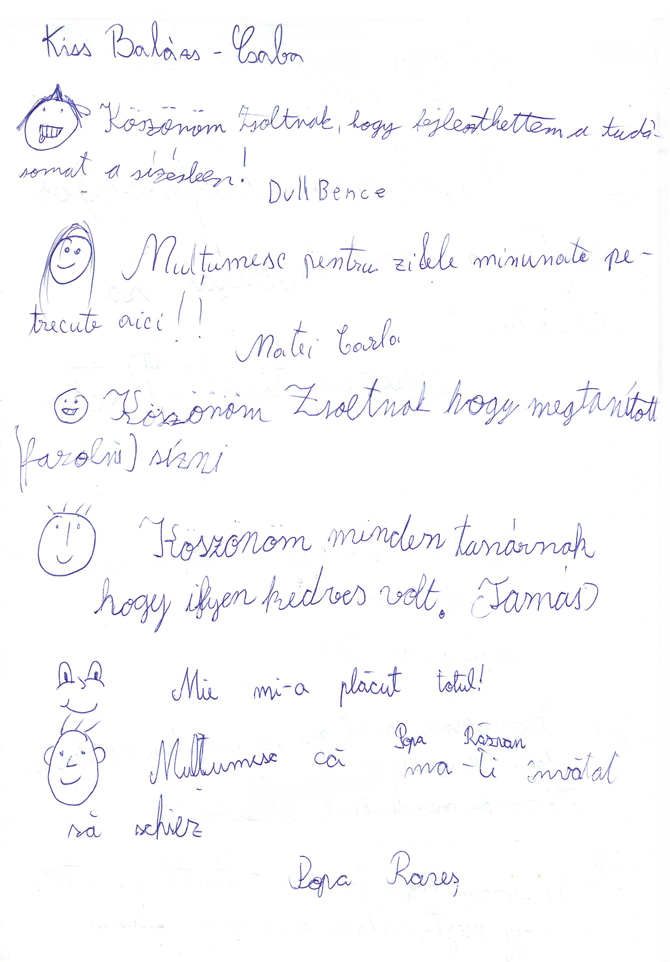 Kiss Balázs - Csaba
Köszönöm Zsoltnak, hogy fejleszthettem a tudá-
somat a sízésben!
Dull Bence
Mulțumesc pentru zilele minunate pe-
trecute aici!!
Matei Carla
Köszönöm Zsoltnak hogy megtanított
(farolni) sízni
Köszönöm minden tanárnak
hogy ilyen kedves volt. (Tamás)
Mie mi-a plăcut totul!
Popa Răzvan
Mulțumesc că ma-ți învățat
să schiez
Popa Rareș